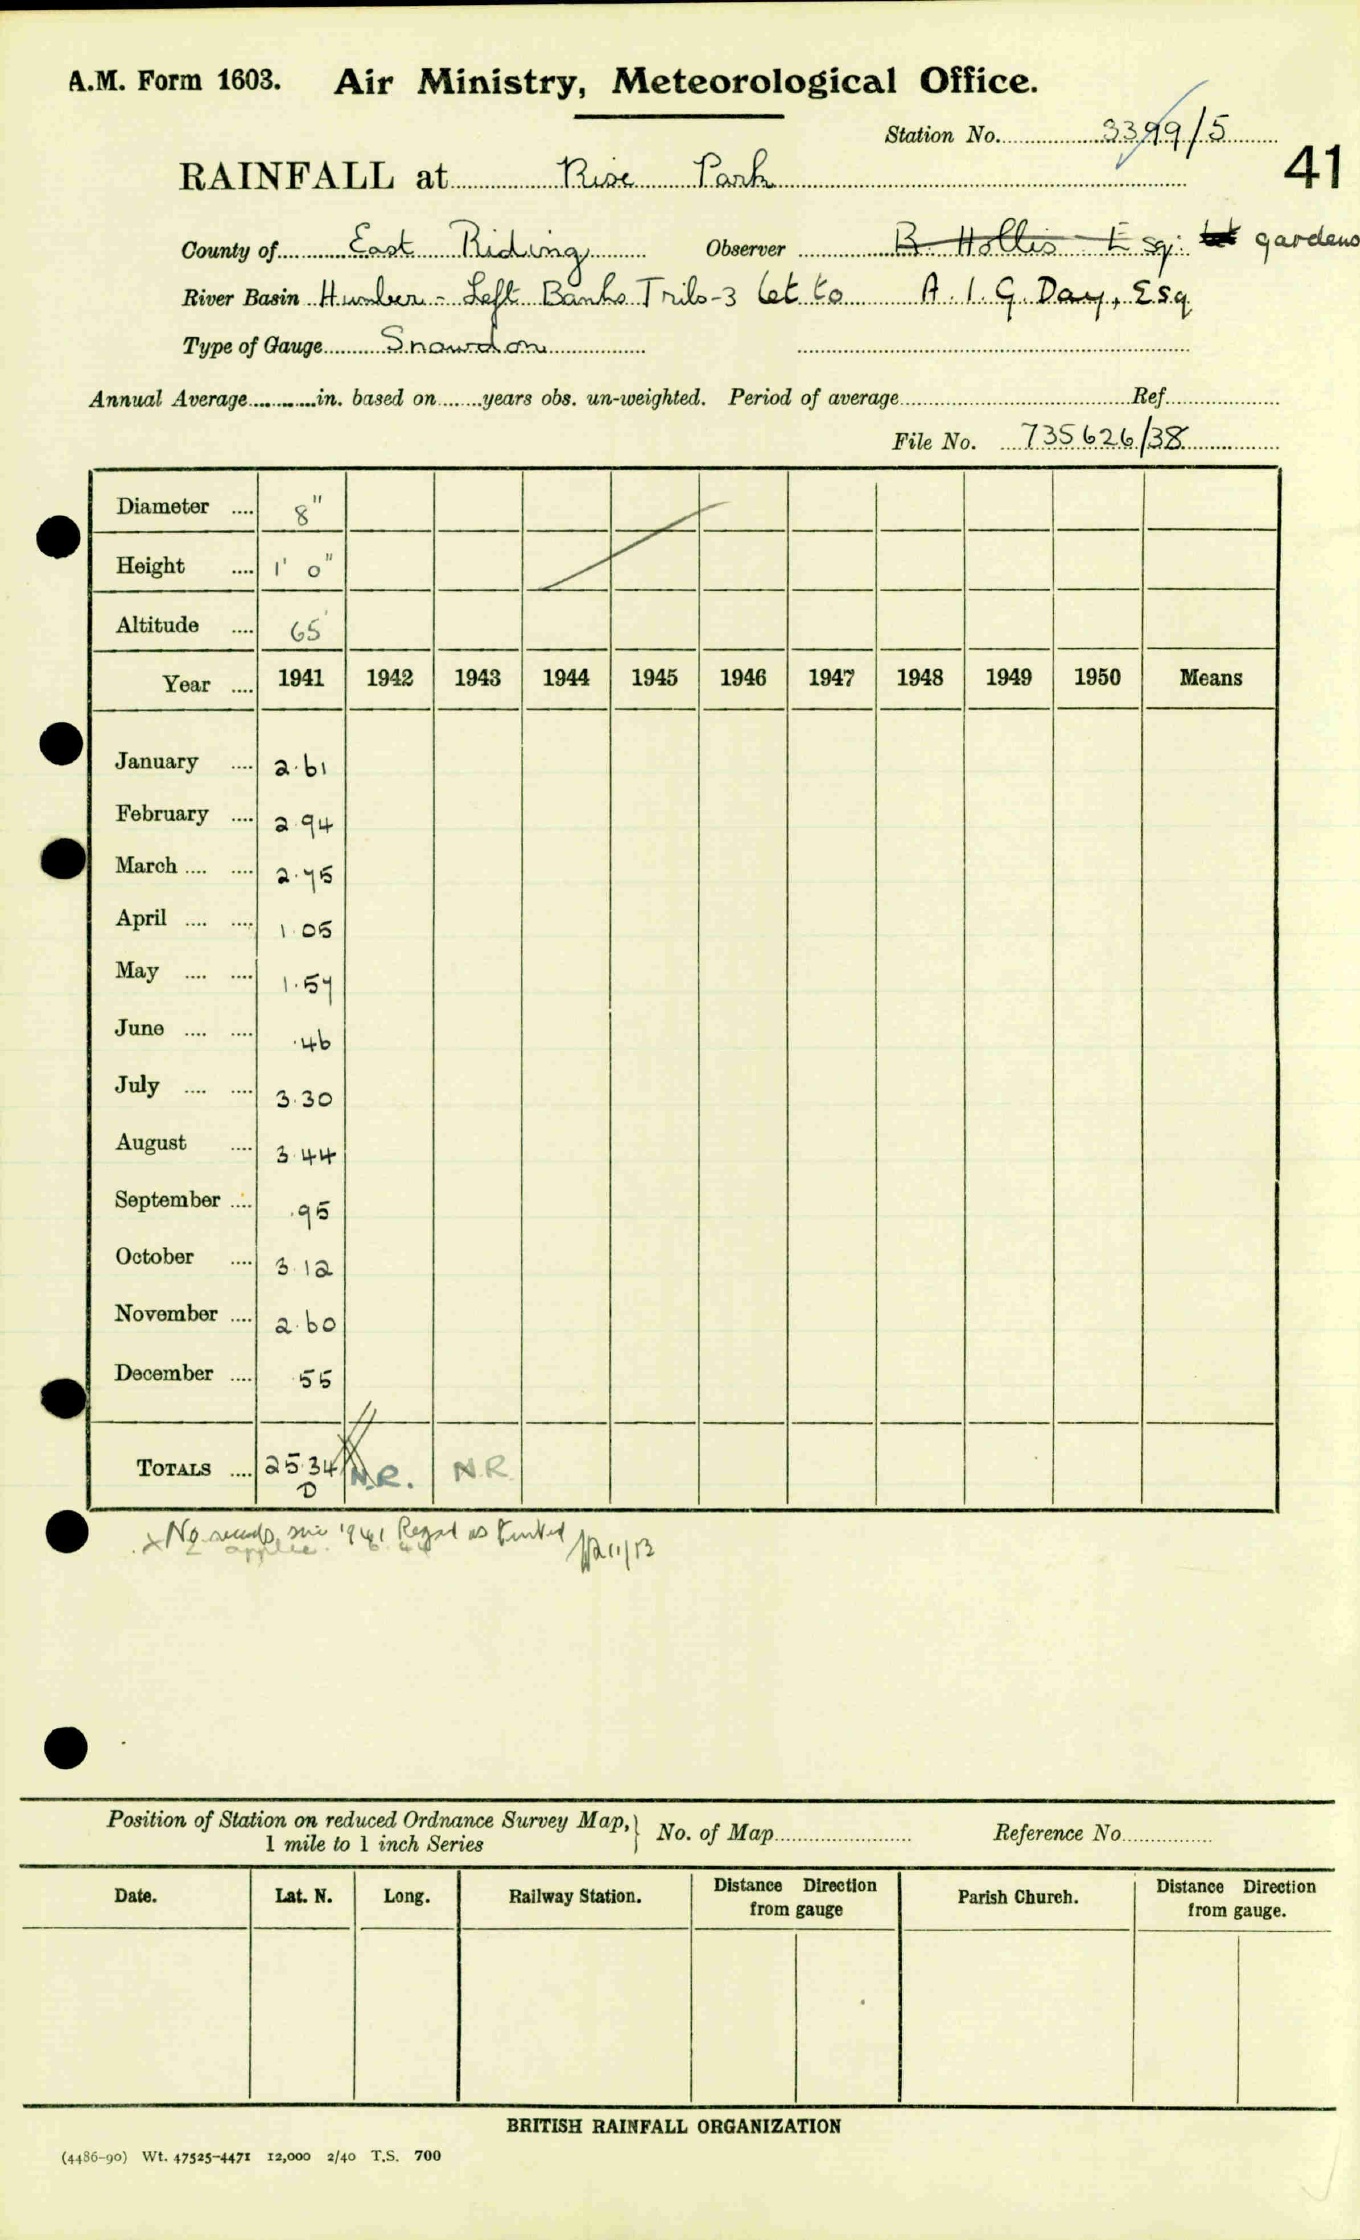 A.M. Form 1603. Air Ministry, Meteorological Office.
Station No. 3399/5
41
RAINFALL at Rise Park
County of East Riding Observer R. Hollis Esq. gardens
River Basin Humber - Left Banks Tribs-3 let to A. I. G. Day, Esq
Type of Gauge Snowdon
Annual Average in. based on years obs. un-weighted. Period of average Ref.
File No. 735626/38
Diameter .... 8"
Height .... 1' 0"
Altitude .... 65'
Year .... 1941 1942 1943 1944 1945 1946 1947 1948 1949 1950 Means
January .... 2.61
February .... 2.94
March .... .... 2.75
April .... .... 1.05
May .... .... 1.57
June .... .... .46
July .... .... 3.30
August .... 3.44
September .... .95
October .... 3.12
November .... 2.60
December .... .55
TOTALS .... 25.34 N.R. N.R.
D
x No records since 1941 Regard as
Position of Station on reduced Ordnance Survey Map, } No. of Map Reference No
1 mile to 1 inch Series
Date. Lat. N. Long. Railway Station. Distance Direction from gauge Parish Church. Distance Direction from gauge.
BRITISH RAINFALL ORGANIZATION
(4486-90) Wt. 47525-4471 12,000 2/40 T.S. 700